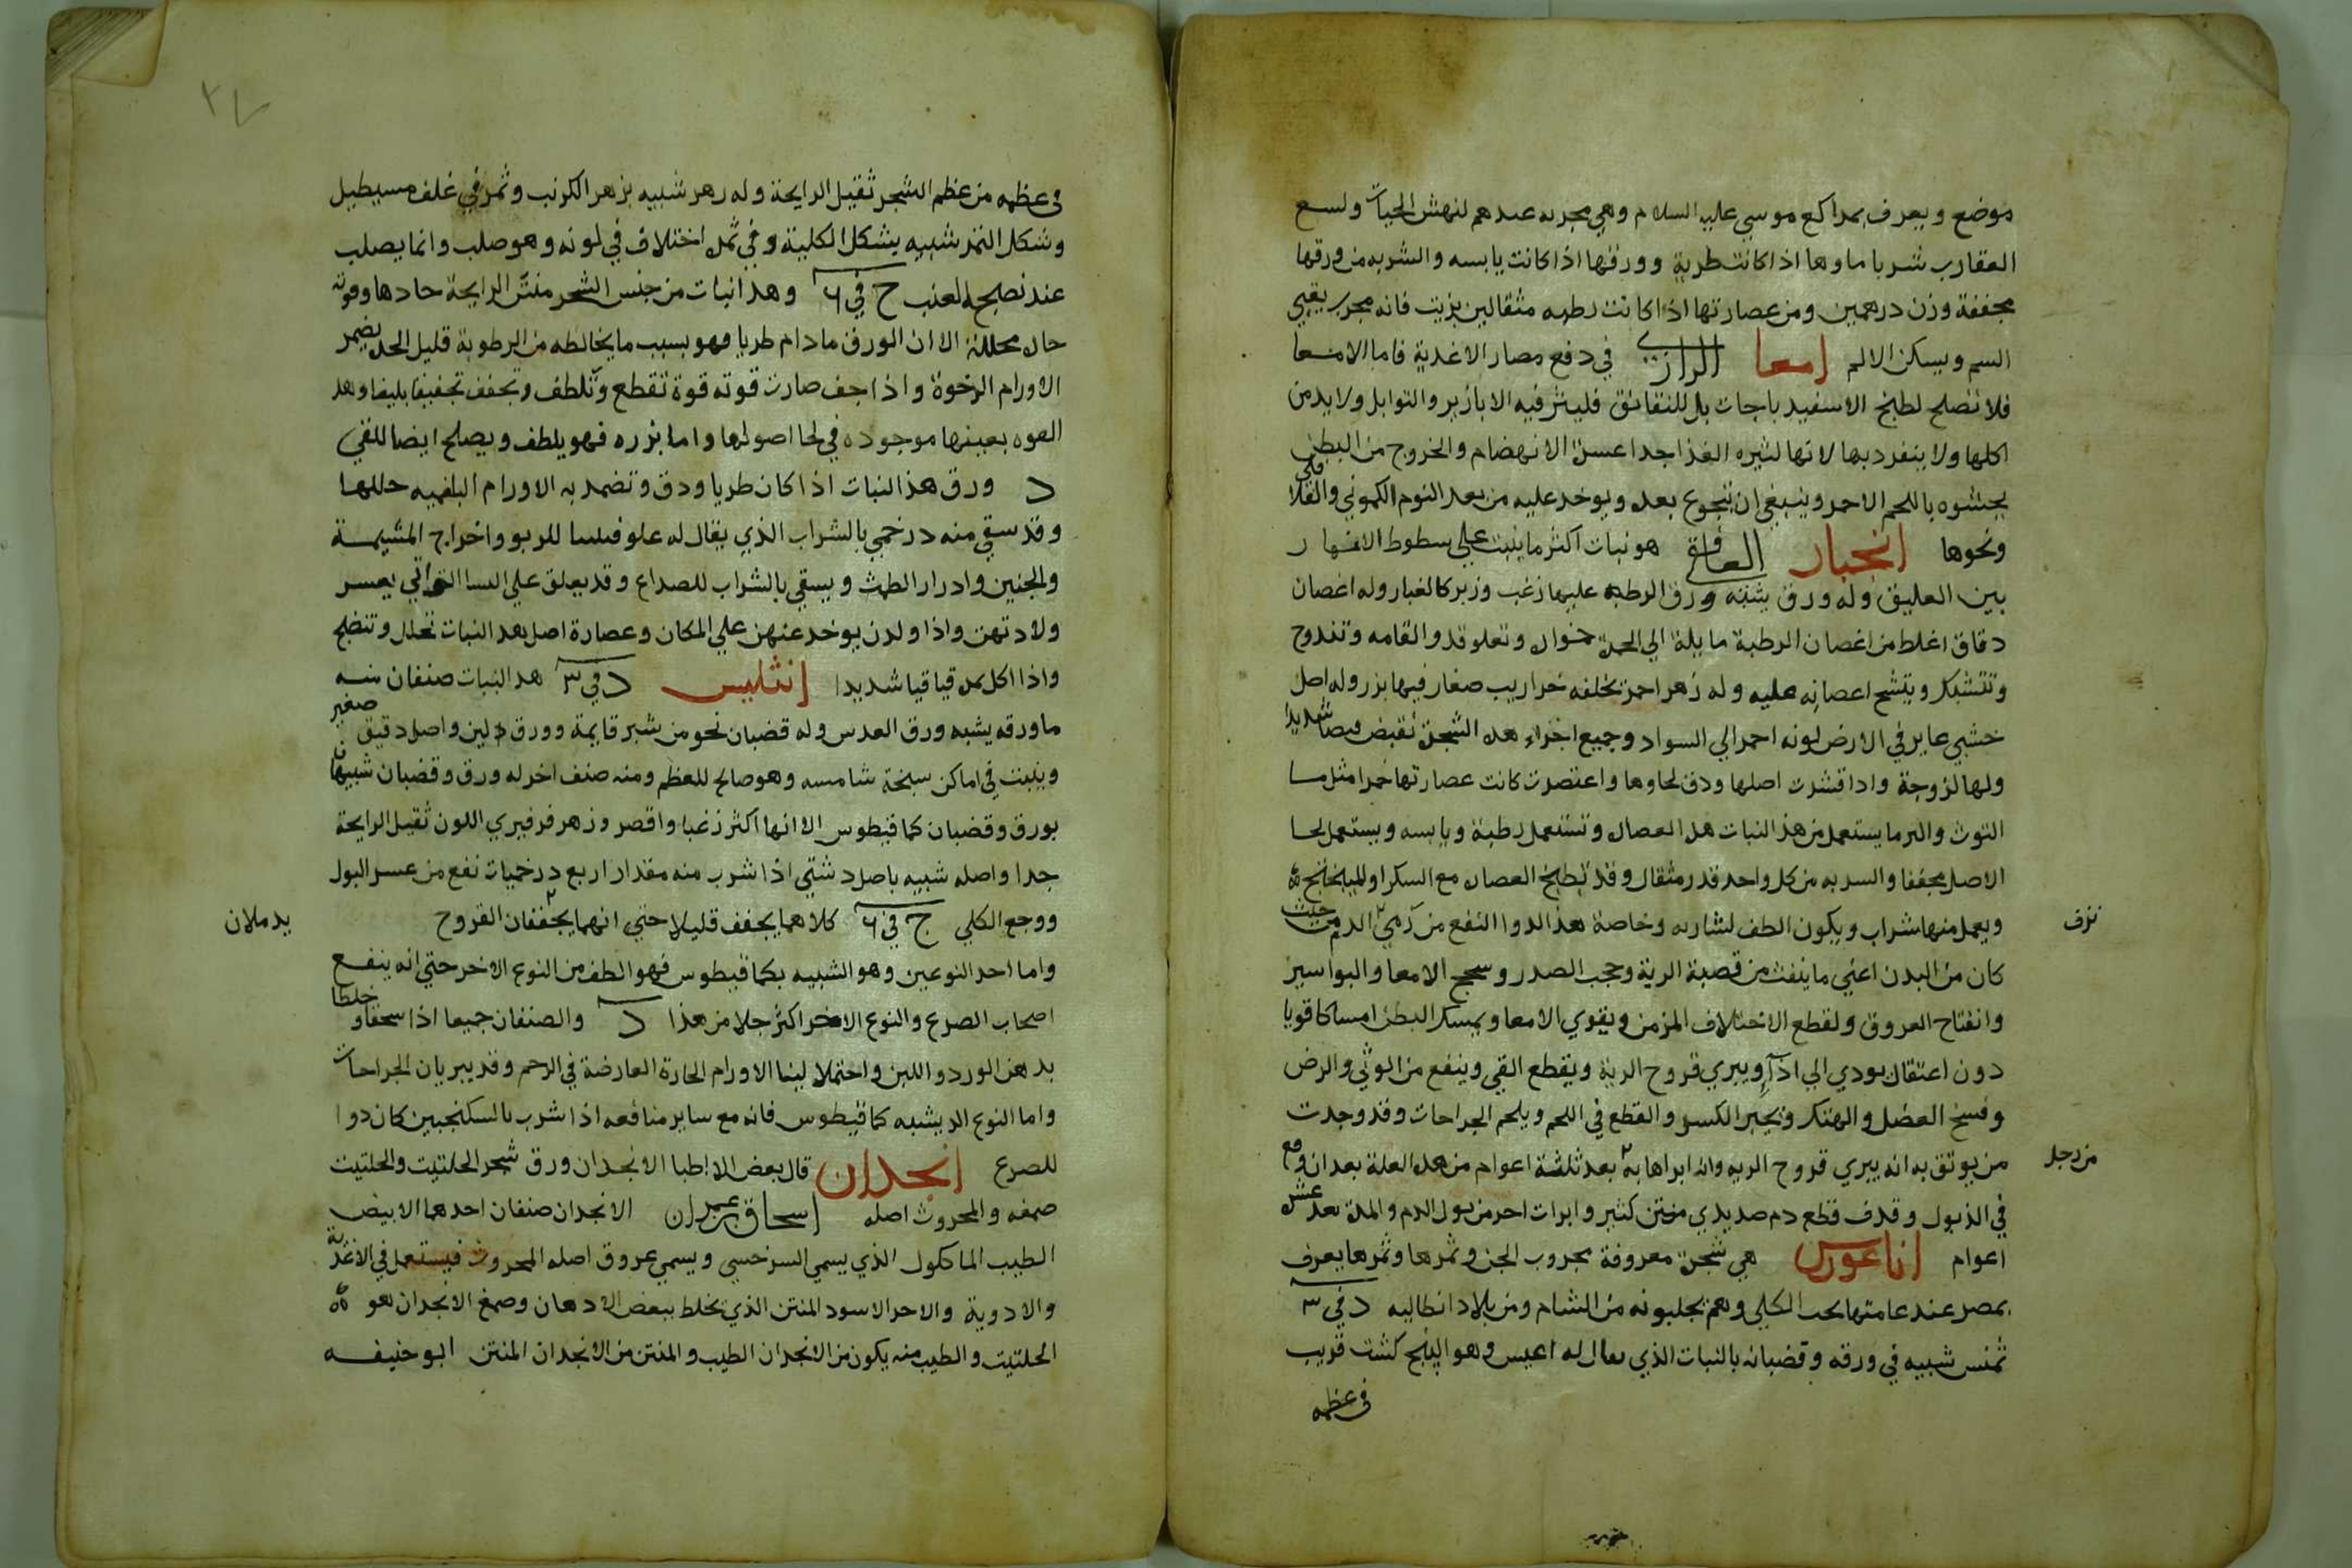 موضع ويعرف بمراكع موسي عليه السلام وهي مجربه عندهم لنهش الحيات ولسع
العقارب شربا ماوها اذا كانت طرية وورقها اذا كانت يابسه والشربه من ورقها
مجففة وزن درهمين ومن عصارتها اذا كانت رطبه مثقالين بزيت فانه مجرب يقي
السم ويسكن الالم امعا الرازي في دفع مضار الاغدية فاما الامعا
فلا تصلح لطبخ الاسفيدباجات بل للنقانق فليثر فيه الابازير والتوابل ولا يدمن
اكلها ولا ينفرد بها لانها لثيره الغذا جدا عسرة الانهضام والخروج من البطن
يحتشوه باللحم الاحمر وينبغي ان يتجوع بعده ويوخذ عليه من بعد النوم الكموني والفلافلي
ونحوها انجبار الغافقي هو نبات اكثر ما ينبت علي سطوط الانهار
بين العليق وله ورق يشبه ورق الرطبه عليها زغب وزبر كالغبار وله اغصان
دقاق اغلط من اغصان الرطبة مايلة الي الحمرة خوار وتعلو قدر القامه وتتدوح
وتتشبك ويتشح اعصانه عليه وله زهر احمر تخلفه خراريب صغار فيها بزر وله اصل
خشبي غاير في الارض لونه احمر الي السواد وجميع اجزاء هده الشجرة تقبض قبضا شديدا
ولها لزوجة وادا قشرت اصلها ودق لحاوها واعتصرت كانت عصارتها حمرا مثل ما
التوت والىر ما يستعمل من هذا النبات هده العصاره وتستعمل رطبة ويابسه ويستعمل لحا
الاصل مجففا والسربه من كل واحد قدر مثقال وقد تطبخ العصاره مع السكر او الميبختج ٥
ويعمل منها شراب ويكون الطف لشاربه وخاصة هذا الدوا النفع من رمي الدم من حيث
نزف
كان من البدن اعني ما ينفث من قصبة الرية وحجب الصدر وسحج الامعا والبواسير
وانفتاح العروق ولقطع الاختلاف المزمن ويقوي الامعا ويمسك البطن امساكا قويا
دون اعتقال يودي الي اذا ويبري قروح الرية ويقطع القي وينفع من الوثي والرض
وفسخ العضل والهتك ويجبر الكسر والقطع في اللحم ويلحم الجراحات وقد وجدت
من يوثق به انه يبري قروح الريه وانه ابراها به بعد ثلثة اعوام من هده العلة بعد ان وقع
من رجل
في الذبول وقدف قطع دم صديدي منتن كثير وابرات احر من بول الدم والمدة بعد عشر
اعوام اناغورس هي شجرة معروفة بخروب الجنزير وثمرها وثمرها يعرف
بمصر عند عامتها بحب الكلي وهم يجلبونه من الشام ومن بلاد انطاليه د في ٣
ثمنس شبيه في ورقه وقضبانه بالنبات الذي يعال له اغيس وهو البنج كشت قريب
في عظمه
٢٧
في عظمه من عظم الشجر ثقيل الرايحة وله رهر شبيه بزهر الكرنب وثمر في غلف مستطيل
وشكل الثمر شبيه بشكل الكلية وفي ثمره اختلاف في لونه وهو صلب وانما يصلب
عند نضيج العنب ج في ٦ وهدا نبات من جنس الشجر منتن الرايحة حادها وقوته
حاره محللة الا ان الورق مادام طريا فهو بسبب ما يخالطه من الرطوبة قليل الحده يضمر
الاورام الرخوة واذا جف صارت قوته قوة تقطع وتلطف وتجفف تجفيفا بليغا وهده
القوه بعينها موجوده في لحا اصولها واما بزره فهو يلطف ويصلح ايضا للقي
د ورق هذا النبات اذا كان طريا ودق وتضمد به الاورام البلغميه حللها
وقد سقي منه درخمي بالشراب الذي يقال له علوقسسا للربو واخراج المشيمة
والجنين وادرار الطمث ويسقي بالشراب للصداع وقد يعلق علي النسا اللواتي يعسر
ولادتهن واذا ولدن يوخد عنهن علي المكان وعصارة اصل هذا النبات تحلل وتنضج
واذا اكل بزره قيا قيا شديدا انثليس د في ٣ هدا النبات صنفان منه
ما ورقه يشبه ورق العدس وله قضبان نحو من شبر قايمة وورق لين واصل دقيق صغير
وينبت في اماكن سبخة شامسه وهو صالح للعظم ومنه صنف اخر له ورق وقضبان شبيهان
بورق وقضبان كمافيطوس الا انها اكثر زغبا واقصر وزهر فرفيري اللون ثقيل الرايحة
جدا واصله شبيه باصل دشتي اذا شرب منه مقدار اربع درخميات نفع من عسر البول
ووجع الكلي ج في ٦ كلاهما يجفف قليلا حتي انهما يجففان القروح
يدملان
واما احد النوعين وهو الشبيه بكمافيطوس فهو الطف من النوع الاخر حتي انه ينفع
اصحاب الصرع والنوع الاخر اكثر جلا من هذا د والصنفان جميعا اذا سحقا وخلطا
بدهن الورد واللبن واحتملا لينا الاورام الحارة العارضة في الرحم وقد يبريان الجراحات
واما النوع الدي يشبه كمافيطوس فانه مع ساير منافعه اذا شرب بالسكنجبين كان دوا
للصرع انجدان قال بعض الاطبا الانجدان ورق شجر الحلتيت والحلتيت
صمغه والمحروث اصله اسحاق بن عمران الانجدان صنفان احدهما الابيض
الطيب الماكول الذي يسمي السرخسي ويسمي عروق اصله المحروث فيستعمل في الاغذية
والادوية والاخر الاسود المنتن الذي يخلط ببعض الادهان وصمغ الانجدان هو ٥
الحلتيت والطيب منه يكون من الانجدان الطيب والمنتن من الانجدان المنتن ابو حنيفه